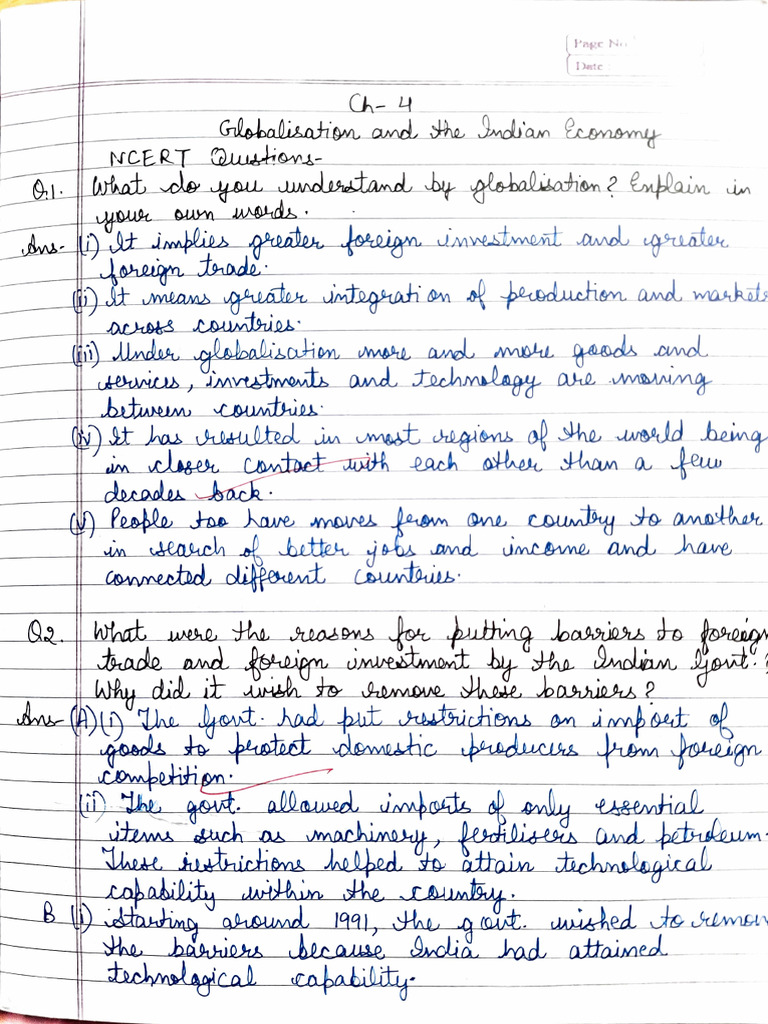 Page No.
Date :
Ch- 4
Globalisation and the Indian Economy
NCERT Questions-
Q.1. What do you understand by globalisation? Explain in
your own words.
Ans- (i) It implies greater foreign investment and greater
foreign trade.
(ii) It means greater integration of production and markets
across countries.
(iii) Under globalisation more and more goods and
services, investments and technology are moving
between countries.
(iv) It has resulted in most regions of the world being
in closer contact with each other than a few
decades back.
(v) People too have moves from one country to another
in search of better jobs and income and have
connected different countries.
Q2. What were the reasons for putting barriers to foreign
trade and foreign investment by the Indian Govt.?
Why did it wish to remove these barriers?
Ans- (A) (i) The Govt. had put restrictions on import of
goods to protect domestic producers from foreign
competition.
(ii) The govt. allowed imports of only essential
items such as machinery, fertilisers and petroleum.
These restrictions helped to attain technological
capability within the country.
B (i) Starting around 1991, the govt. wished to remov
the barriers because India had attained
technological capability.